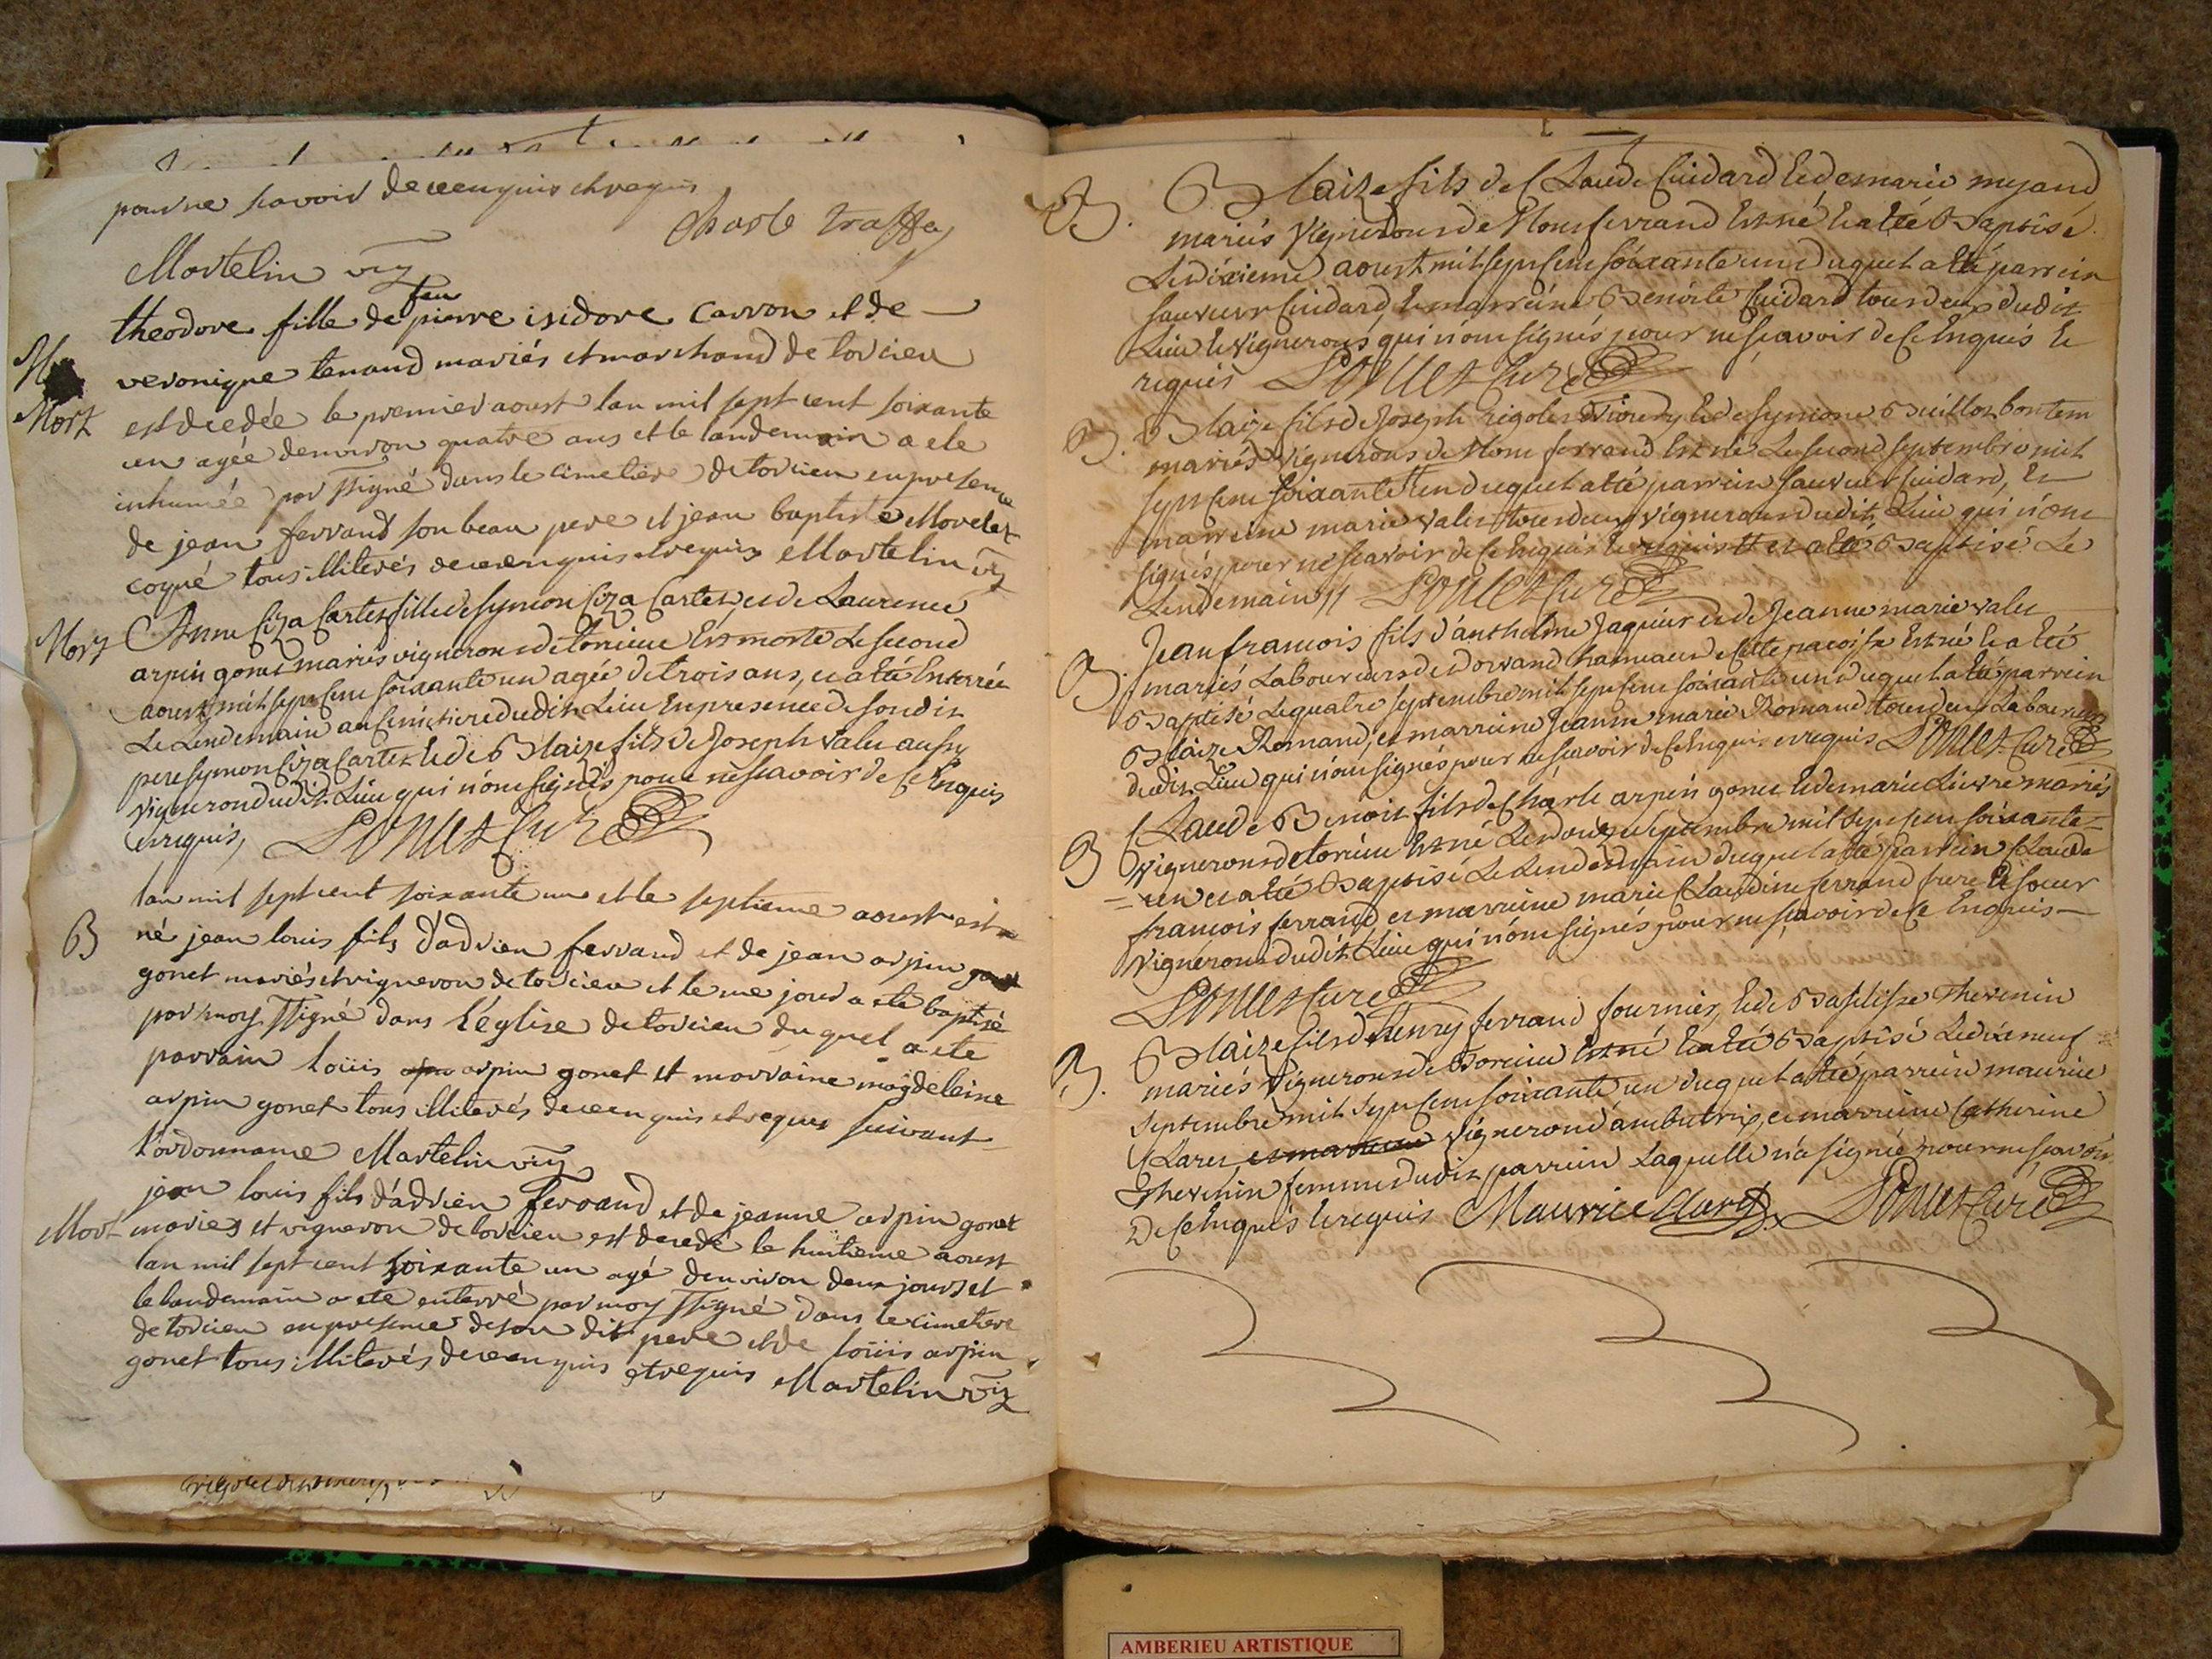 pour ne scavoir de ce enquis et requis
Charle traffay
Martelin vic
feu
theodore fille de pierre isidore carron et de
veronique tenand mariés et marchand de torcieu
Mort
est decedée le premier aoust lan mil sept cent soixante
un agée denviron quatre ans et le landemain a ete
inhumée par ssigné dans le cimetiere de torcieu en presence
de jean ferrand son beau pere et jean baptiste Morelet
coqué tous illiterés de ce enquis et requis Martelin vic
Mort
Anne Ciza Cartet fille de Symon Ciza Cartet, et de Laurence
arpin gonet mariés vignerons de torcieu Est morte Le second
aoust mil sept cent soixante un agée de trois ans, et a été Enterrée
Le Lendemain au Cimetiere dudit Lieu En presence de son dit
pere symon Ciza Cartet Et de Blaize fils de Joseph valu aussy
vigneron dudit Lieu qui n'ont signés pour ne scavoir de ce Enquis
et requis, Bonnet Curé
lan mil sept cent soixante un et le septieme aoust est
B
né jean louis fils d'adrien ferrand et de jean arpin
gonet mariés et vigneron de torcieu et le me jour a ete baptisé
par moy ssigné dans l'église de torcieu du quel a ete
parrain loüis arpin gonet et marraine magdeleine
arpin gonet tous illiterés de ce enquis et requis suivant
l'ordonnance Martelin vic
jean louis fils d'adrien ferrand et de jeanne arpin gonet
Mort mariés et vigneron de torcieu est decedé le huitieme aoust
lan mil sept cent soixante un agé denviron deux jours et
le landemain a ete enterré par moy ssigné dans le cimetiere
de torcieu en presence de son dit pere et de loüis arpin
gonet tous illiterés de ce enquis et requis Martelin vic
B.
Blaize fils de Claude Cuidard Et de marie myand
mariés vignerons de Monferrand Est né Et a été Baptisé
Le dixieme aoust mil sept cent soixante un duquel a été parrein
sauveur Cuidard, Et marreine Benoite Cuidard tous deux dudit
Lieu Et vignerons qui n'ont signés pour ne scavoir de ce Enquis Et
requis Bonnet Curé
B.
Blaize fils de Joseph rigolet Et de Symone Buillot bontem
mariés vignerons de Mont ferrand Est né Le second septembre mil
sept cent soixante un duquel a été parrein sauveur Cuidard, Et
marreine marie valu tous deux vignerons dudit Lieu qui n'ont
signés pour ne scavoir de ce Enquis Et requis Et a été Baptisé Le
Lendemain Bonnet Curé
B.
Jean francois fils d'anthelme Jaquier et de Jeanne marie valu
mariés Laboureurs de dorvand hameau de cette paroisse Est né Et a été
Baptisé Le quatre septembre mil sept cent soixante un duquel a été parrein
Blaize Romand, et marreine Jeanne marie Romand tous deux Laboureurs
dudit Lieu qui n'ont signés pour ne scavoir de ce Enquis et requis Bonnet Curé
B
Claude Benoit fils de Charle arpin gonet Et de marie Livvre mariés
vignerons de torcieu Est né Le douze septembre mil sept cent soixante
un et a été Baptisé Le Lendemain duquel a été parrein Claude
francois ferrand et marreine marie Claudine ferrand frere Et soeur
vignerons dudit Lieu qui n'ont signés pour ne scavoir de ce Enquis
Bonnet Curé
B.
Blaize fils d'henry ferrand fournier, Et de Baptiste Thevenin
mariés vignerons de Torcieu Est né Et a été Baptisé Le dix neuf
septembre mil sept cent soixante un duquel a été parrein maurice
Claret et marreine vigneron d'ambutrix, et marreine Catherine
Thevenin femme dudit parrein Laquelle n'a signé pour ne scavoir
De ce Enquis Et requis Maurice Claret Bonnet Curé
AMBERIEU ARTISTIQUE